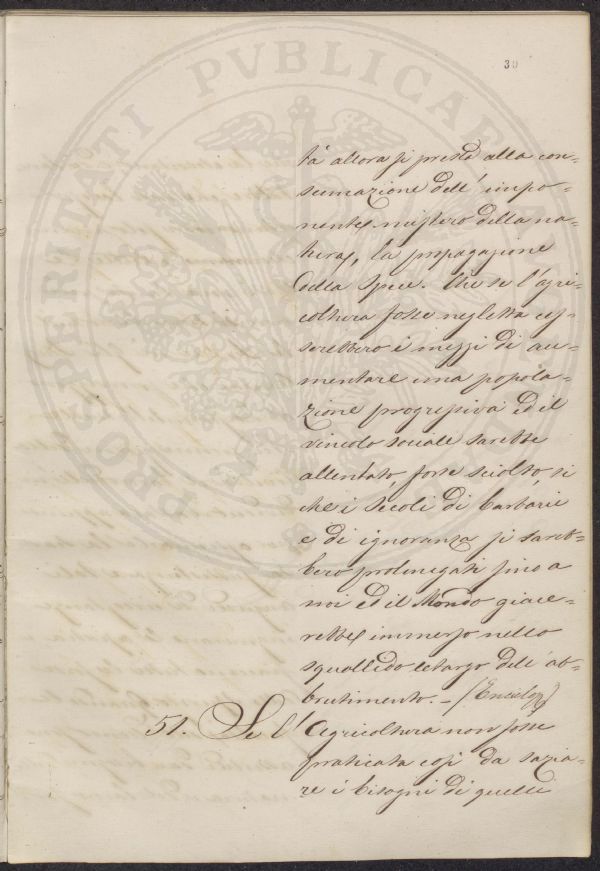 PROSPERITATI PVBLICAE
30
tà allora si presta alla con-
sumazione dell' impo-
nente mistero della na-
tura, la propagazione
della specie. Che se l'agri-
coltura fosse negletta ces-
serebbero i mezzi di au-
mentare una popola-
zione progressiva ed il
vincolo sociale sarebbe
allentato, forse sciolto, si
che i secoli di barbarie
e di ignoranza si sareb-
bero prolungati sino a
noi ed il Mondo giace-
rebbe immerso nello
squallido letargo dell' ab-
brutimento. - (Enciclop.)
51. Se l' Agricoltura non fosse
praticata così da sazia-
re i bisogni di quelli